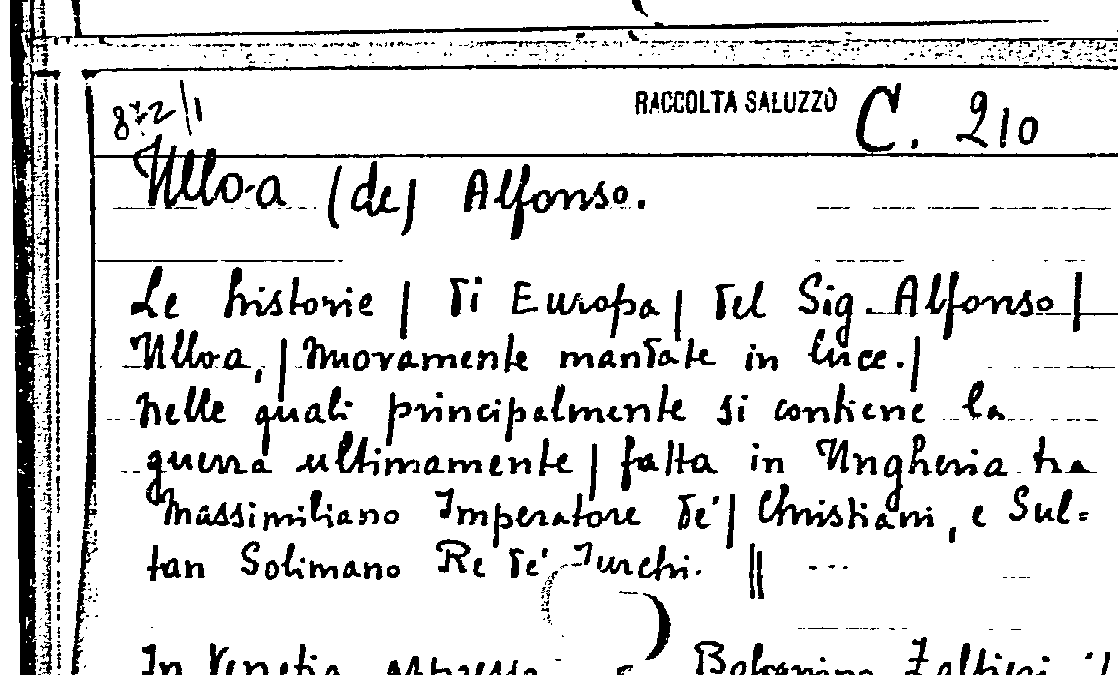 872/1 RACCOLTA SALUZZO C. 210
Ulloa (de) Alfonso.
Le historie | di Europa | del Sig. Alfonso |
Ulloa, | Nuovamente mandate in luce. |
Nelle quali principalmente si contiene la
guerra ultimamente | fatta in Ungheria tra
Massimiliano Imperatore de' | Christiani, e Sul=
tan Solimano Re de' Turchi. || ...
In Venetia, appresso Bolognino Zaltieri